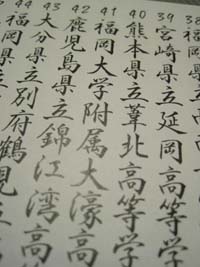 38 福岡
39 宮崎県立延岡高等学
40 熊本県立葦北高等学
41 福岡大学附属大濠高
42 鹿児島県立錦江湾高
43 大分県立別府鶴見
44 福岡